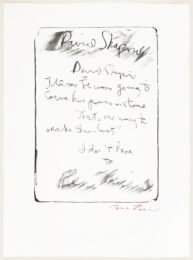 David Shapiro
David Shapiro
told me he was going to
carve his poems in stone
"that's one way to
make them last"
I don't have
to